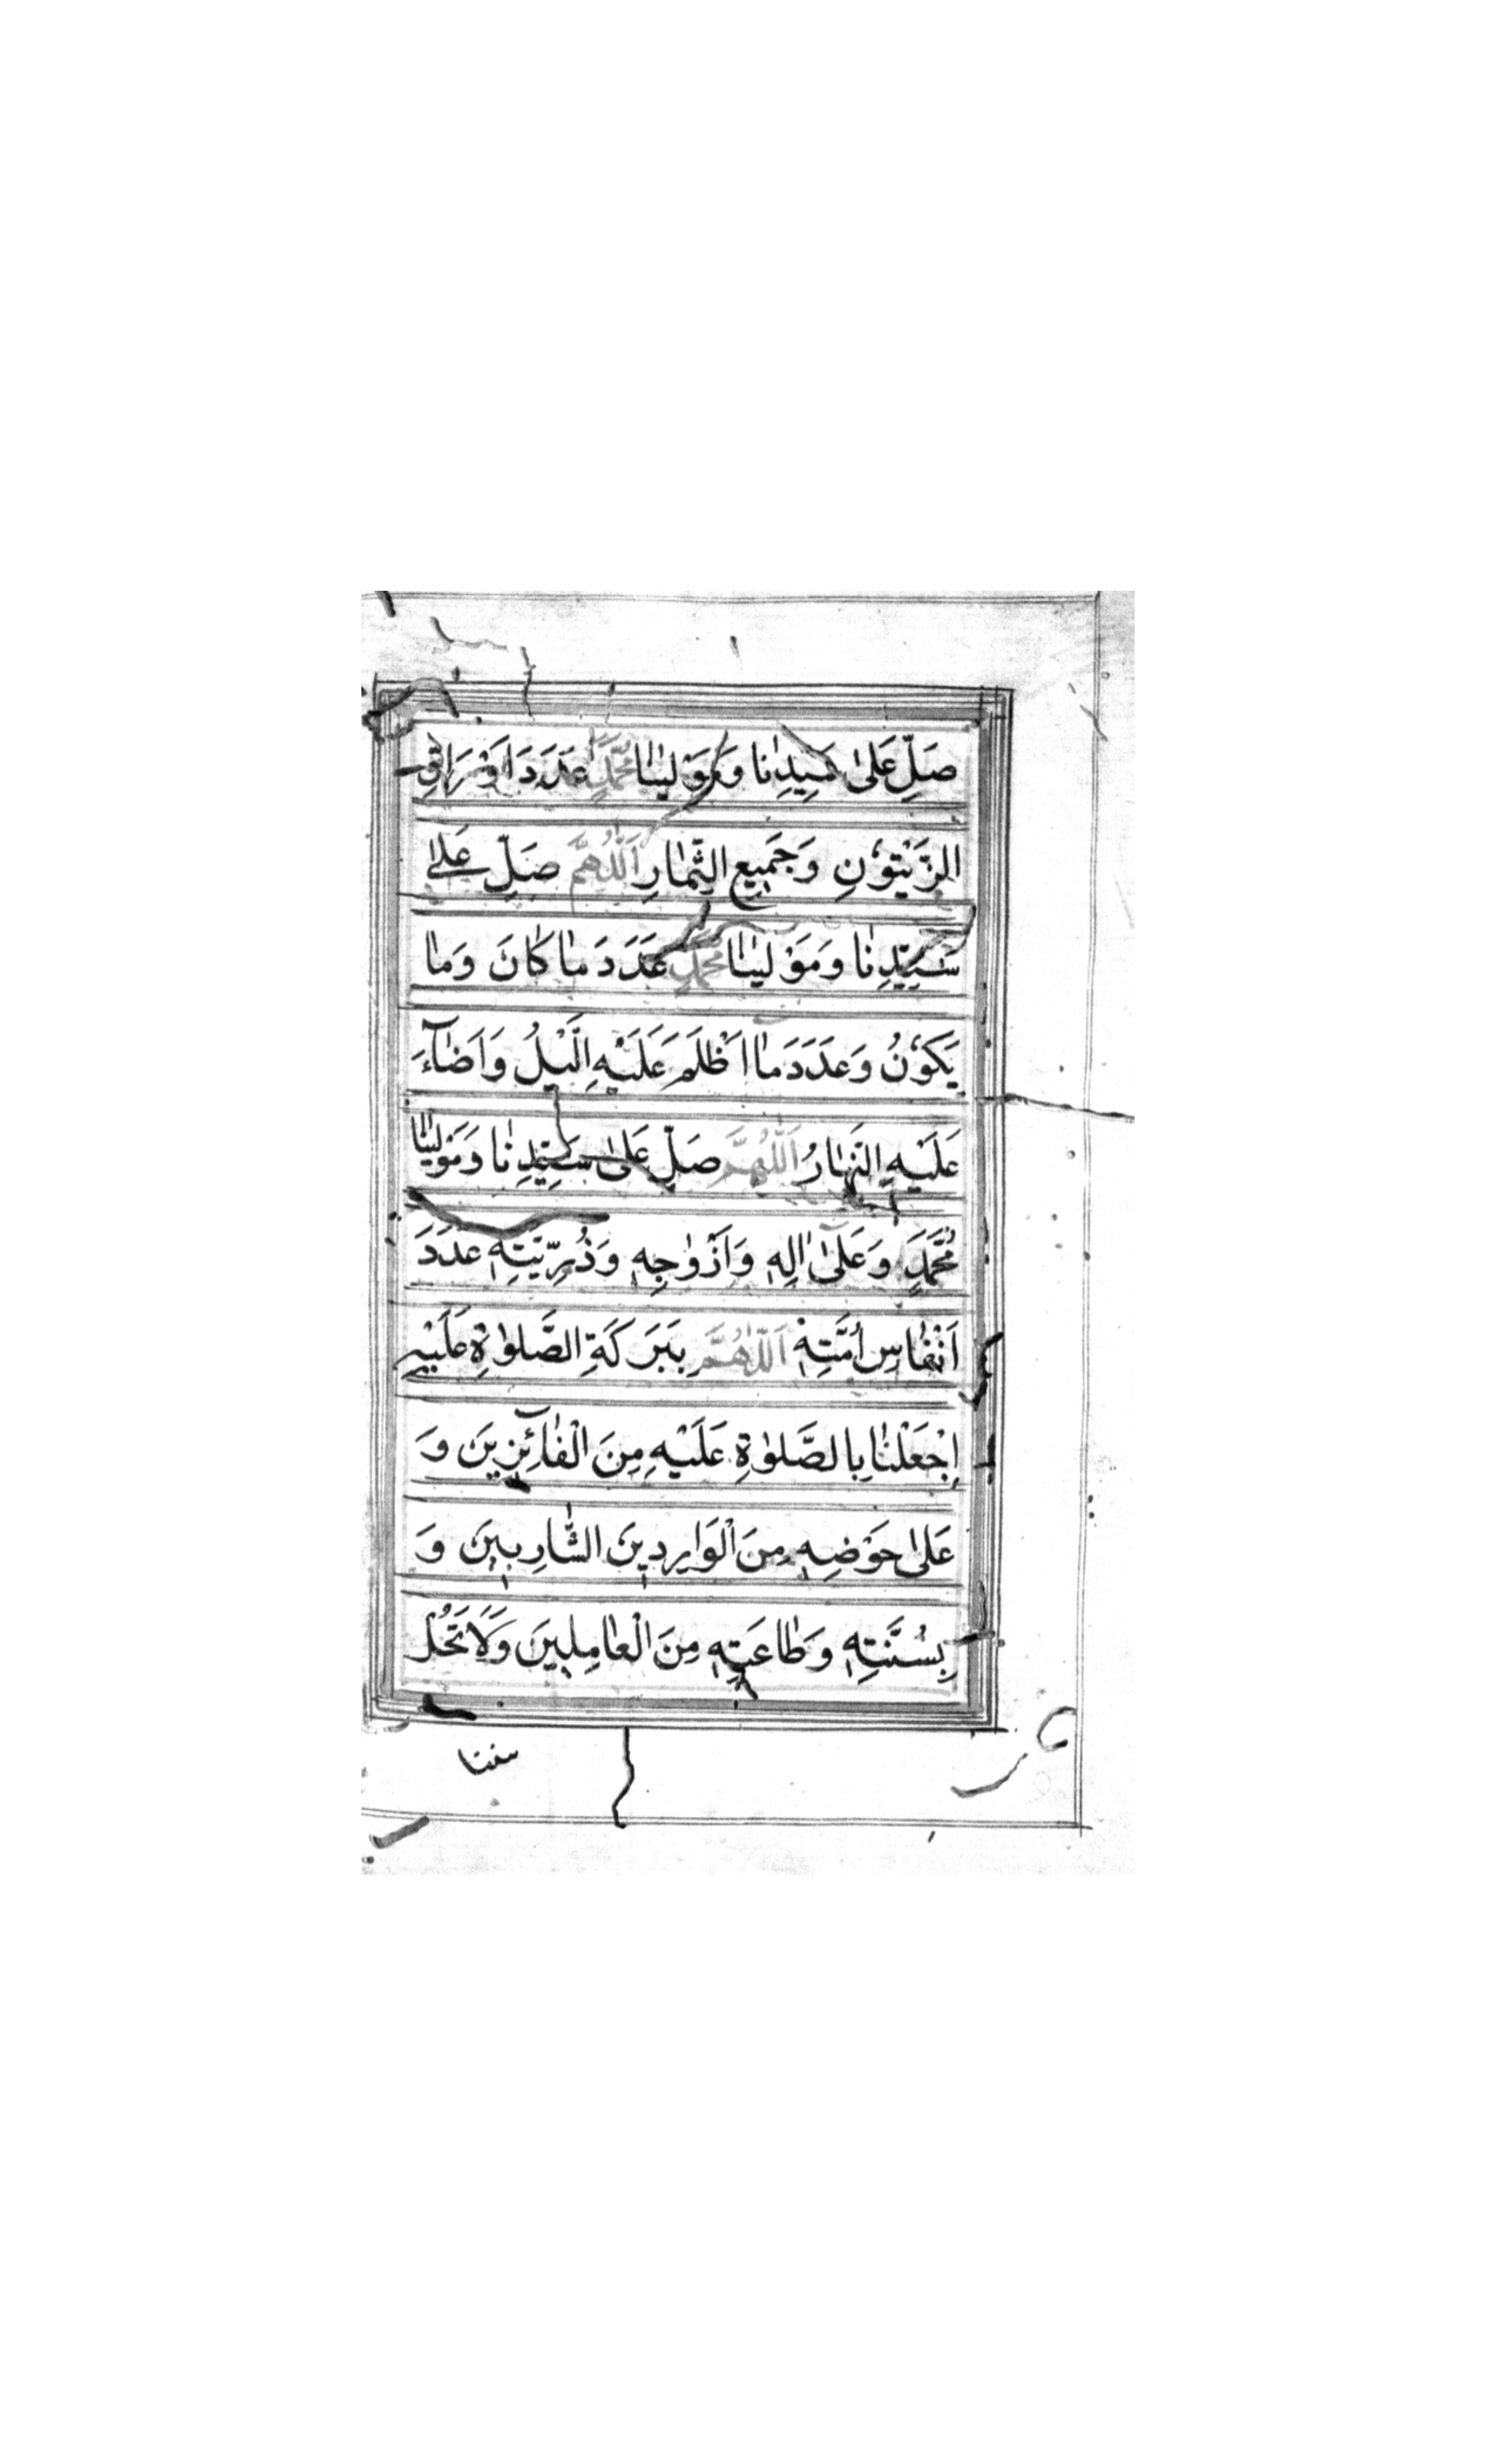 صَلِّ عَلىٰ سَيِّدِنٰا وَمَوْلیٰنٰا مُحَمَّدٍ عَدَدَ اَوْرَاقِ
الزَّيْتُوْنِ وَجَمِيعِ الثِّمٰارِ اَللّٰهُمَّ صَلِّ عَلىٰ
سَيِّدِنٰا وَمَوْلیٰنٰا مُحَمَّدٍ عَدَدَ مٰا كٰانَ وَمٰا
يَكُوْنُ وَعَدَدَ مٰا اَظْلَمَ عَلَيْهِ الَّيْلُ وَاَضٰٓاءَ
عَلَيْهِ النَّهٰارُ اَللّٰهُمَّ صَلِّ عَلىٰ سَيِّدِنٰا وَمَوْلیٰنٰا
مُحَمَّدٍ وَعَلىٰٓ اٰلِهٖ وَاَزْوٰجِهٖ وَذُرِّيَّتِهٖ عَدَدَ
اَنْفٰاسِ اُمَّتِهٖ اَللّٰهُمَّ بِبَرَكَةِ الصَّلوٰةِ عَلَيْهِ
اِجْعَلْنٰا بِالصَّلوٰةِ عَلَيْهِ مِنَ الْفٰآئِزِينَ وَ
عَلىٰ حَوْضِهٖ مِنَ الْوَارِدِينَ الشّٰارِبِينَ وَ
بِسُنَّتِهٖ وَطٰاعَتِهٖ مِنَ الْعٰامِلِينَ وَلَا تَحُلْ
بيننا